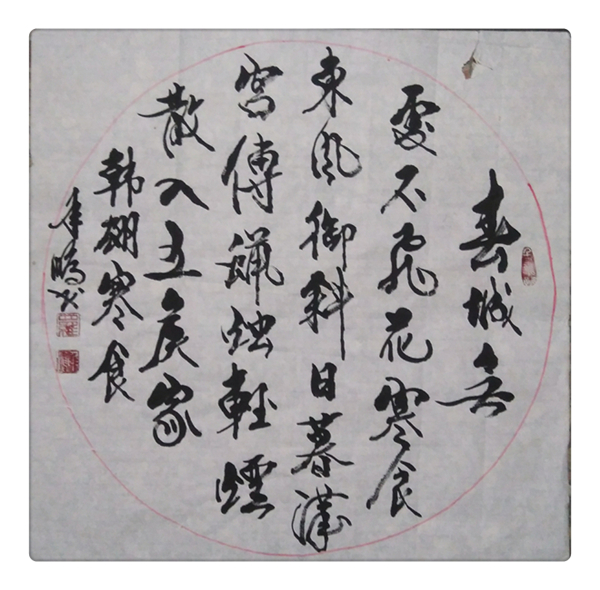 春城無
處不飛花寒食
東風御斜日暮漢
宮傳蠟烛輕煙
散入五侯家
韩翃寒食
鵬书